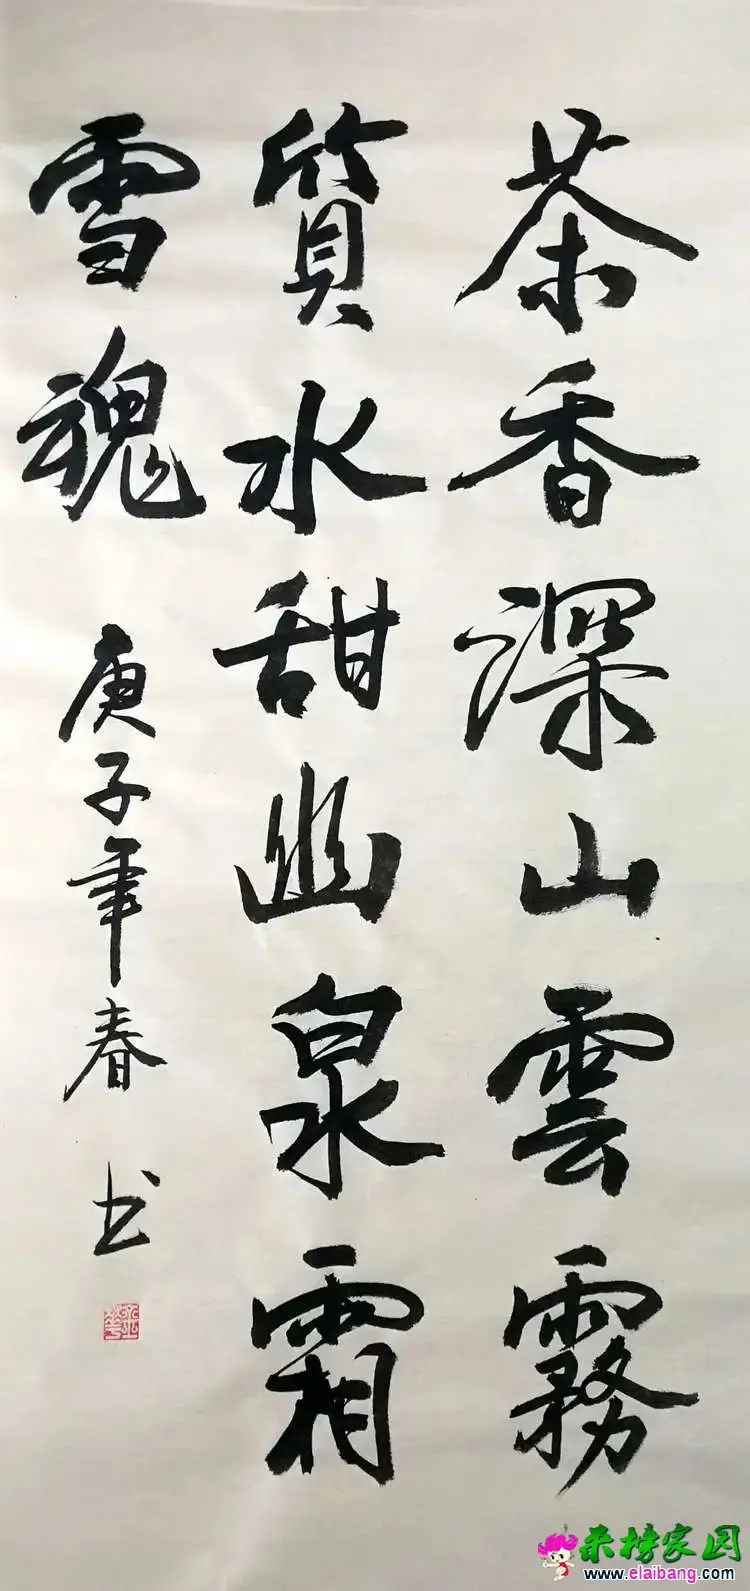 茶香深山雲霧
質水甜幽泉霜
雪魂
庚子年春 书
来榜家园
www.elaibang.com